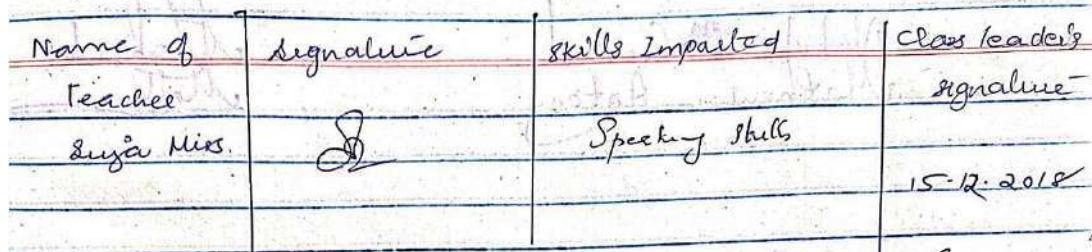 Name of Signature Skills Imparted Class leader's
Teacher signature
Suja Miss. Speaking skills
15-12-2018